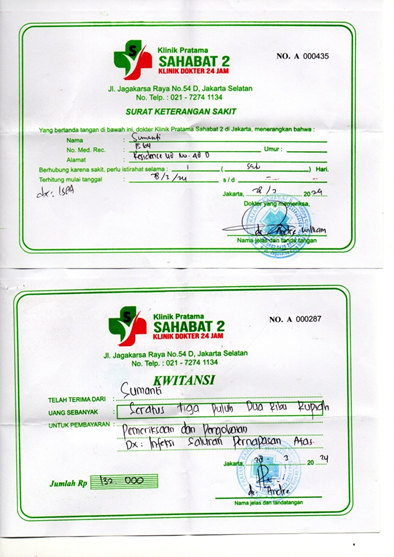 Klinik Pratama
SAHABAT 2
KLINIK DOKTER 24 JAM
NO. A 000435
Jl. Jagakarsa Raya No.54 D, Jakarta Selatan
No. Telp. : 021 - 7274 1134
SURAT KETERANGAN SAKIT
Yang bertanda tangan di bawah ini, dokter Klinik Pratama Sahabat 2 di Jakarta, menerangkan bahwa :
Nama : Sumanti
No. Med. Rec. : Umur :
Alamat : Residence No. 4B D
Berhubung karena sakit, perlu istirahat selama : 1 ( ) Hari.
Terhitung mulai tanggal : 28/2/24 s / d - -
dx: ISPA
Jakarta, 28 / 2 2024
Dokter yang memeriksa,
dr. Andre
Nama jelas dan tanda tangan
Klinik Pratama
SAHABAT 2
KLINIK DOKTER 24 JAM
NO. A 000287
Jl. Jagakarsa Raya No.54 D, Jakarta Selatan
No. Telp. : 021 - 7274 1134
KWITANSI
TELAH TERIMA DARI : Sumanti
UANG SEBANYAK : Seratus Tiga Puluh Dua Ribu Rupiah
UNTUK PEMBAYARAN : Pemeriksaan dan Pengobatan
Dx: Infeksi Saluran Pernapasan Atas
Jakarta, 28 - 2 2024
Jumlah Rp 132.000
dr. Andre
Nama jelas dan tandatangan